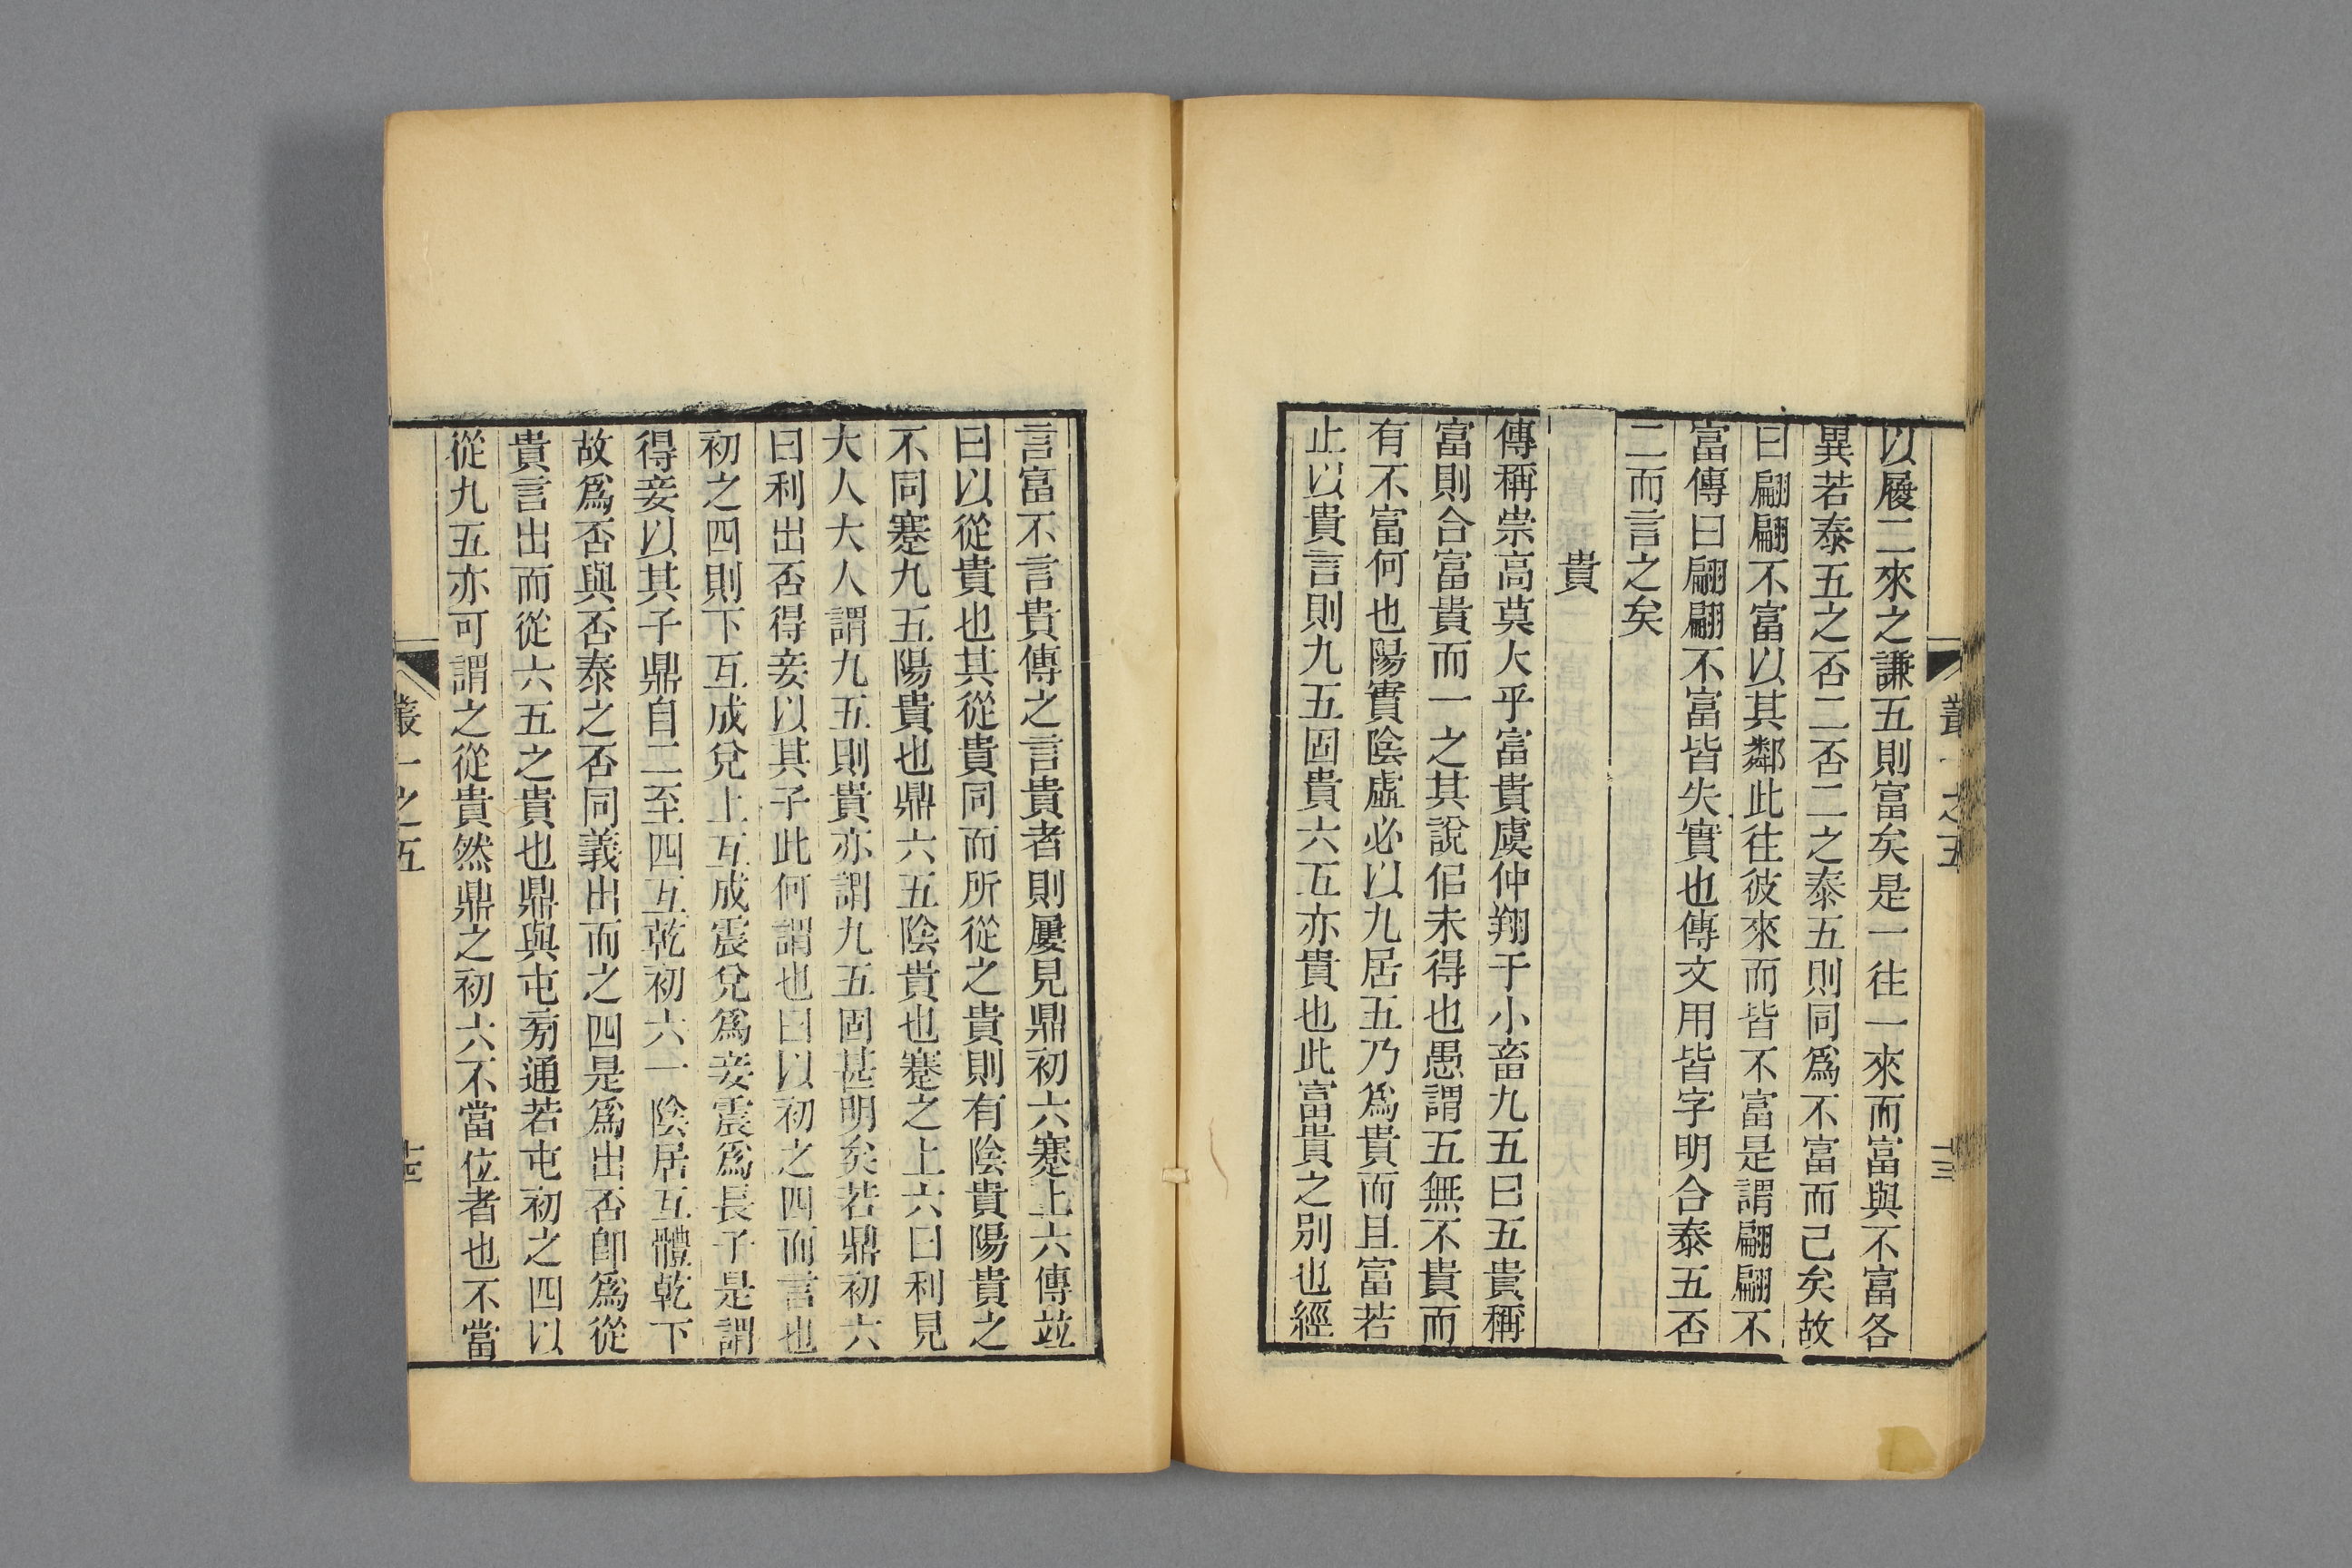 以履二來之謙五則富矣是一往一來而富與不富各
異若泰五之否二否二之泰五則同爲不富而已矣故
曰翩翩不富以其鄰此往彼來而皆不富是謂翩翩不
富傳曰翩翩不富皆失實也傳文用皆字明合泰五否
二而言之矣
貴
傳稱崇高莫大乎富貴虞仲翔于小畜九五曰五貴稱
富則合富貴而一之其說佀未得也愚謂五無不貴而
有不富何也陽實陰虛必以九居五乃爲貴而且富若
止以貴言則九五固貴六五亦貴也此富貴之別也經
言富不言貴傳之言貴者則屢見鼎初六蹇上六傳竝
曰以從貴也其從貴同而所從之貴則有陰貴陽貴之
不同蹇九五陽貴也鼎六五陰貴也蹇之上六曰利見
大人大人謂九五則貴亦謂九五固甚明矣若鼎初六
曰利出否得妾以其子此何謂也曰以初之四而言也
初之四則下互成兌上互成震兌爲妾震爲長子是謂
得妾以其子鼎自二至四互乾初六一陰居互體乾下
故爲否與否泰之否同義出而之四是爲出否卽爲從
貴言出而從六五之貴也鼎與屯旁通若屯初之四以
從九五亦可謂之從貴然鼎之初六不當位者也不當
叢一之五